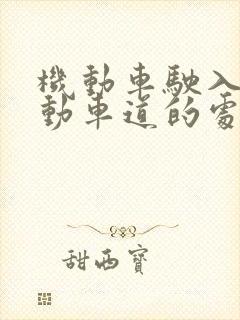 機動車駛入
動車道的處
甜西寶